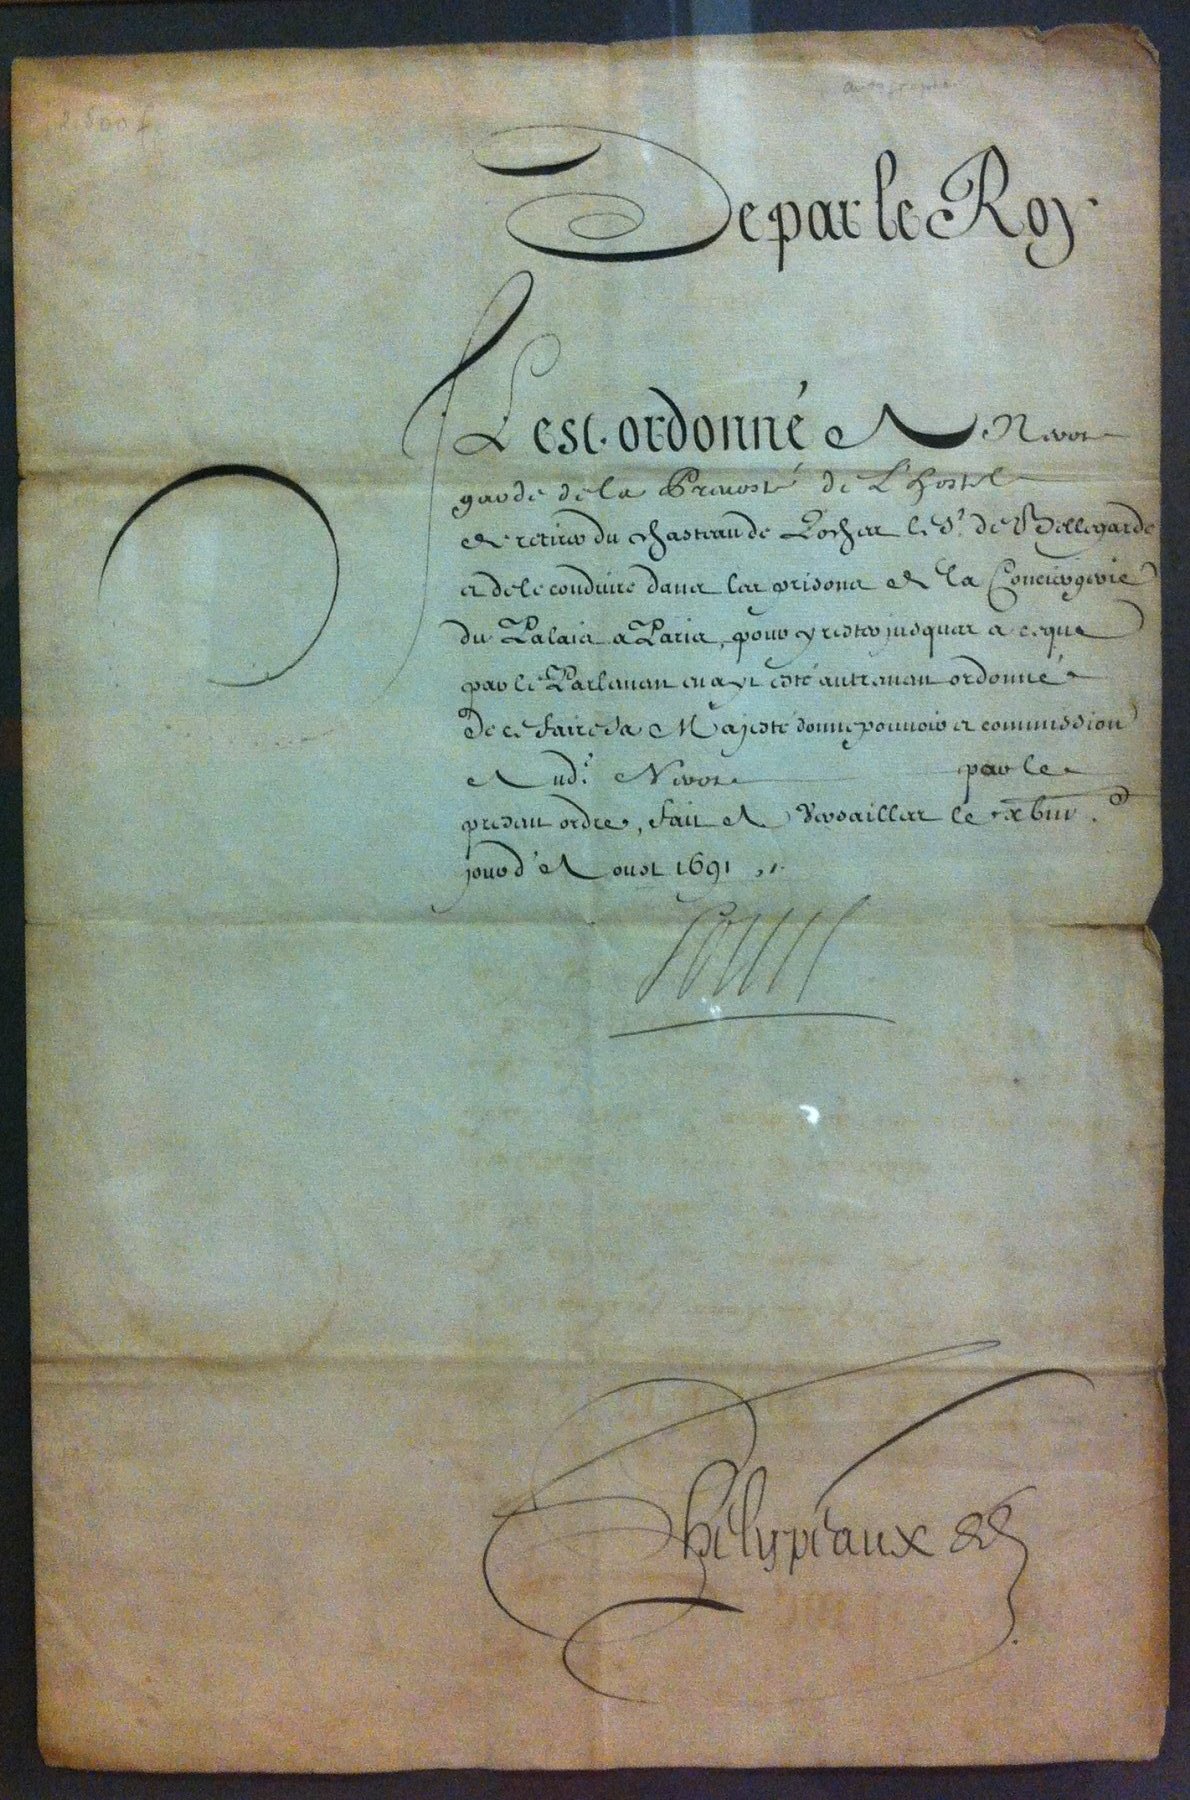 2.500 f
autographe
De par le Roy.
Il est ordonné A Nivor
garde de la Prevosté de L'hostel
de retirer du chasteau de Loches le Sr. de Bellegarde
et de le conduire dans les prisons de la Conciergerie
du Palais a Paris, pour y rester jusques a ce que
par le Parlement en ayt esté autrement ordonné
De ce faire Sa Majesté donne pouvoir et commission
Aud. Nivor par le
present ordre, fait A Versailles le
jour d'Aoust 1691
Louis
Phélypeaux